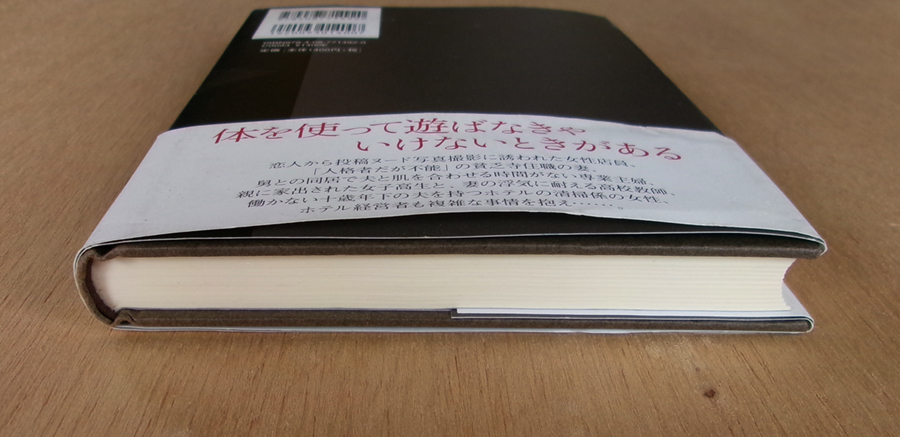 体を使って遊ばなきゃ
いけないときがある
恋人から投稿ヌード写真撮影に誘われた女性店員、
「人格者だが不能」の貧乏寺住職の妻、
舅との同居で夫と肌を合わせる時間がない専業主婦、
親に家出された女子高生と、妻の浮気に耐える高校教師、
働かない十歳年下の夫を持つホテルの清掃係の女性、
ホテル経営者も複雑な事情を抱え……。